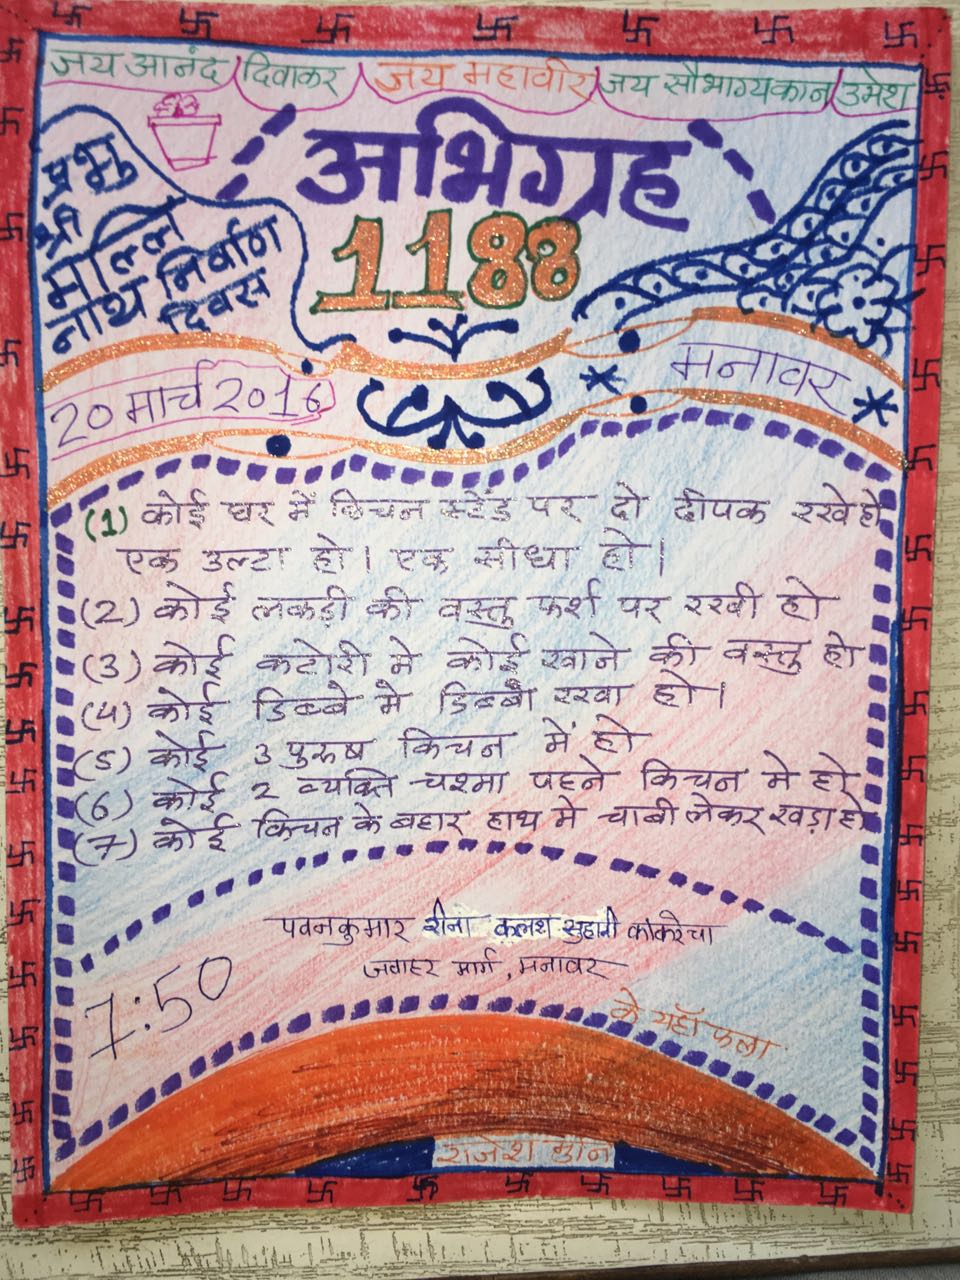 जय आनंद दिवाकर जय महावीर जय सौभाग्यकान उमेश
अभिग्रह
1188
प्रभु
श्री
मल्लि
नाथ निर्वाण
दिवस
20 मार्च 2016
मनावर
(1) कोई घर में किचन स्टेंड पर दो दीपक रखे हो
एक उल्टा हो। एक सीधा हो।
(2) कोई लकड़ी की वस्तु फर्श पर रखी हो
(3) कोई कटोरी मे कोई खाने की वस्तु हो
(4) कोई डिब्बे मे डिब्बा रखा हो।
(5) कोई 3 पुरुष किचन में हो
(6) कोई 2 व्यक्ति चश्मा पहने किचन मे हो
(7) कोई किचन के बहार हाथ मे चाबी लेकर खड़ा हो
पवनकुमार रीना कलश सुहानी कांकरेचा
जवाहर मार्ग, मनावर
के यहाँ फला
7:50
राजेश मुनि